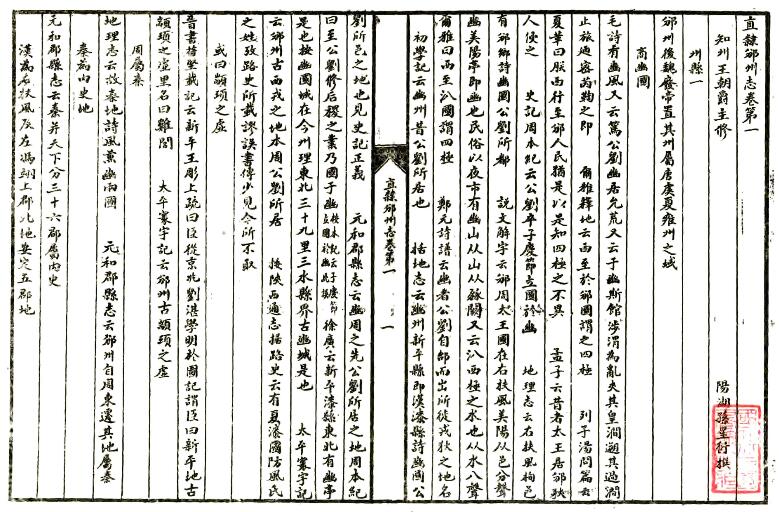 直隸邠州志卷第一
知州王朝爵主修
陽湖孫星衍撰
州縣一
邠州後魏廢帝置其州屬唐虞夏雍州之域
商幽國
毛詩有豳風又云篤公劉豳居允荒又云于豳斯館涉渭為亂夹其皇澗遡其過澗
止旅迺密芮鞫之即 爾雅釋地云西至於邠國謂之四極 列子湯問篇云
夏革曰朕西行至邠人民猶是以是知四極之不異 孟子云昔者太王居邠狄
人侵之 史記周本紀云公劉卒子慶節立國於豳 地理志云右扶風栒邑
有邠鄉詩豳國公劉所都 說文解字云邠周太王國在右扶風美陽从邑分聲
豳美陽亭即豳也民俗以夜市有豳山从山从豩闕又云汃西極之水也从水八聲
爾雅曰西至汃國謂四極 鄭元詩譜云豳者公劉自邰而出所徙戎狄之地名
初學記云豳州昔公劉所居也 括地志云豳州新平縣即漢漆縣詩豳國公
直隸邠州志卷第一
一
劉所邑之地也見史記正義 元和郡縣志云豳周之先公劉所居之地周本紀
曰至公劉修后稷之業乃國于豳 徐廣云新平漆縣東北有豳亭
是也按豳國城在今州理東北三十九里三水縣界古豳城是也 太平寰宇記
云邠州古西戎之地本周公劉所居 按陝西通志据路史云有夏漆國防風氏
之姓攷路史所載謬誤書傳少見今所不取
或曰顓頊之虛
晉書苻堅載記云新平王彫上疏曰臣從京兆劉湛學明於圖記謂臣曰新平地古
顓頊之虛里名曰雞閭 太平寰宇記云邠州古顓頊之虛
周屬秦
地理志云故秦地詩風兼豳兩國 元和郡縣志云邠州自周東遷其地屬秦
秦為內史地
元和郡縣志云秦并天下分三十六郡屬內史
漢為右扶風及左馮翊上郡北地安定五郡地